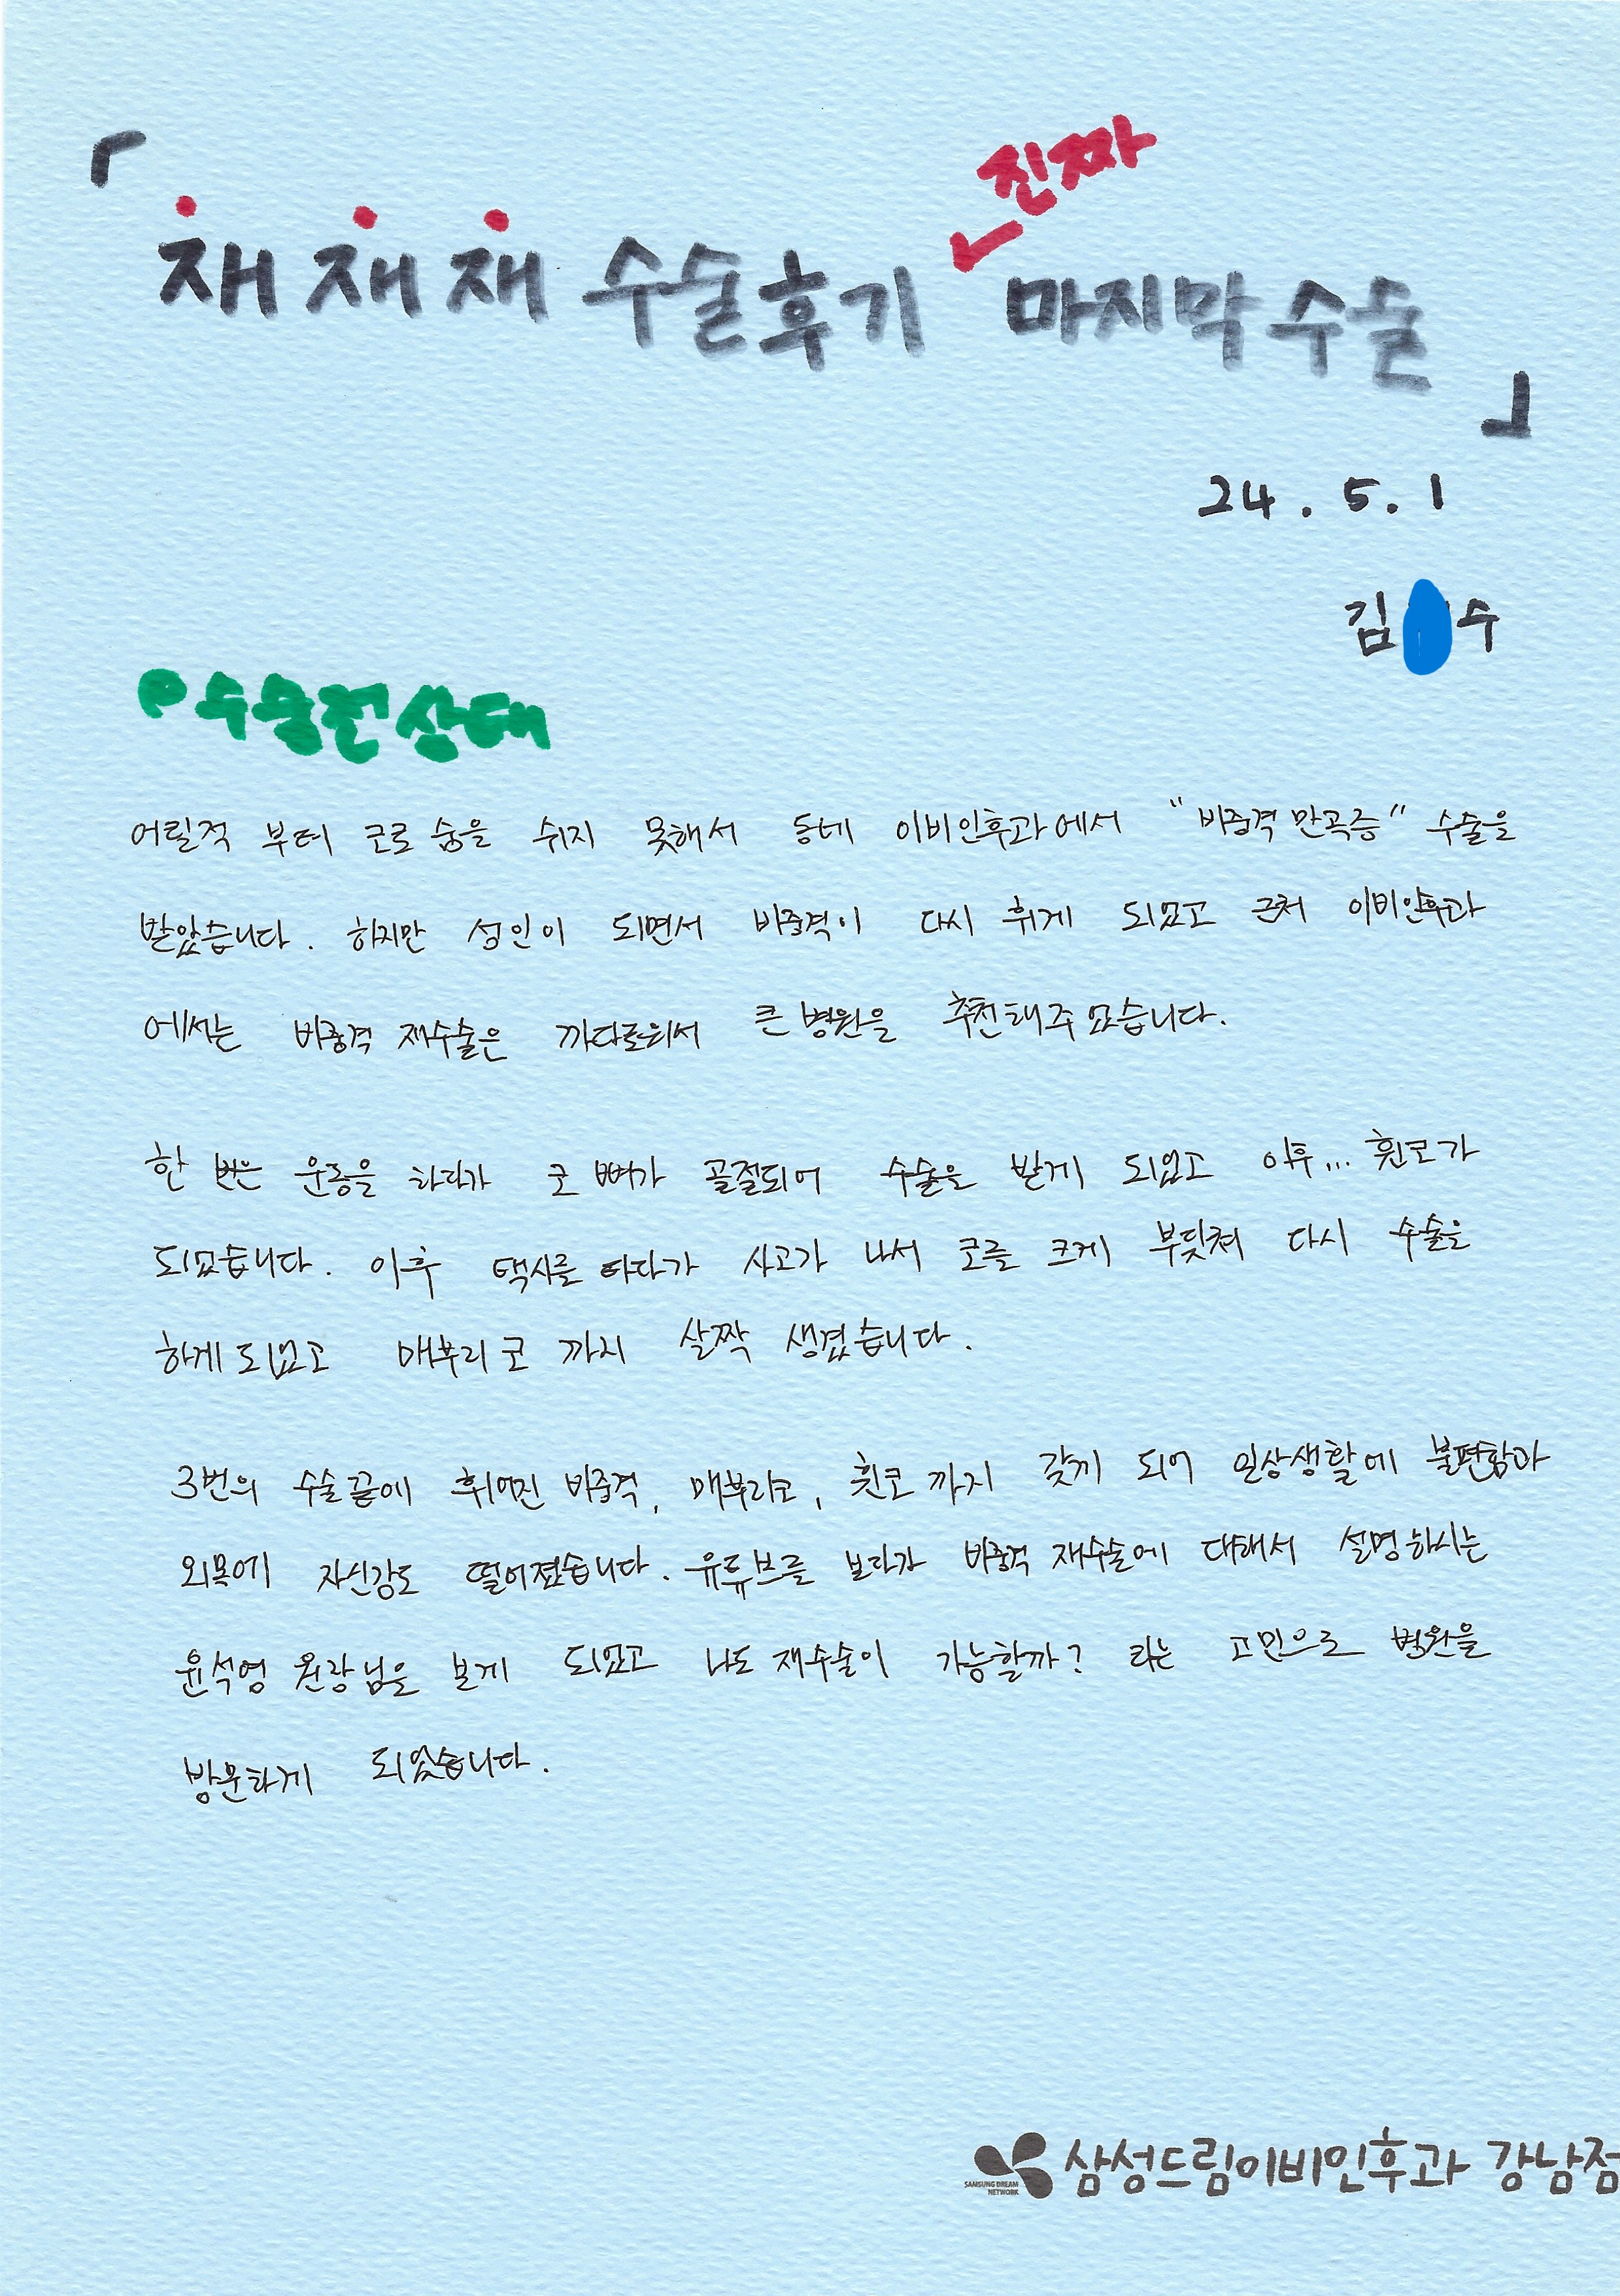 「
진짜
재재재 수술후기 마지막 수술
」
24. 5. 1
김 수
수술전 상태
어릴적 부터 코로 숨을 쉬지 못해서 동네 이비인후과에서 "비중격 만곡증" 수술을
받았습니다. 하지만 성인이 되면서 비중격이 다시 휘게 되었고 근처 이비인후과
에서는 비중격 재수술은 까다로워서 큰 병원을 추천해주셨습니다.
한 번은 운동을 하다가 코 뼈가 골절되어 수술을 받게 되었고 이후... 휜코가
되었습니다. 이후 택시를 타다가 사고가 나서 코를 크게 부딪쳐 다시 수술을
하게 되었고 매부리코 까지 살짝 생겼습니다.
3번의 수술 끝에 휘어진 비중격, 매부리코, 휜코 까지 갖게 되어 일상생활에 불편함과
외모에 자신감도 떨어졌습니다. 유튜브를 보다가 비중격 재수술에 대해서 설명하시는
윤석영 원장님을 보게 되었고 나도 재수술이 가능할까? 라는 고민으로 병원을
방문하게 되었습니다.
SAMSUNG DREAM
NETWORK
삼성드림이비인후과 강남점